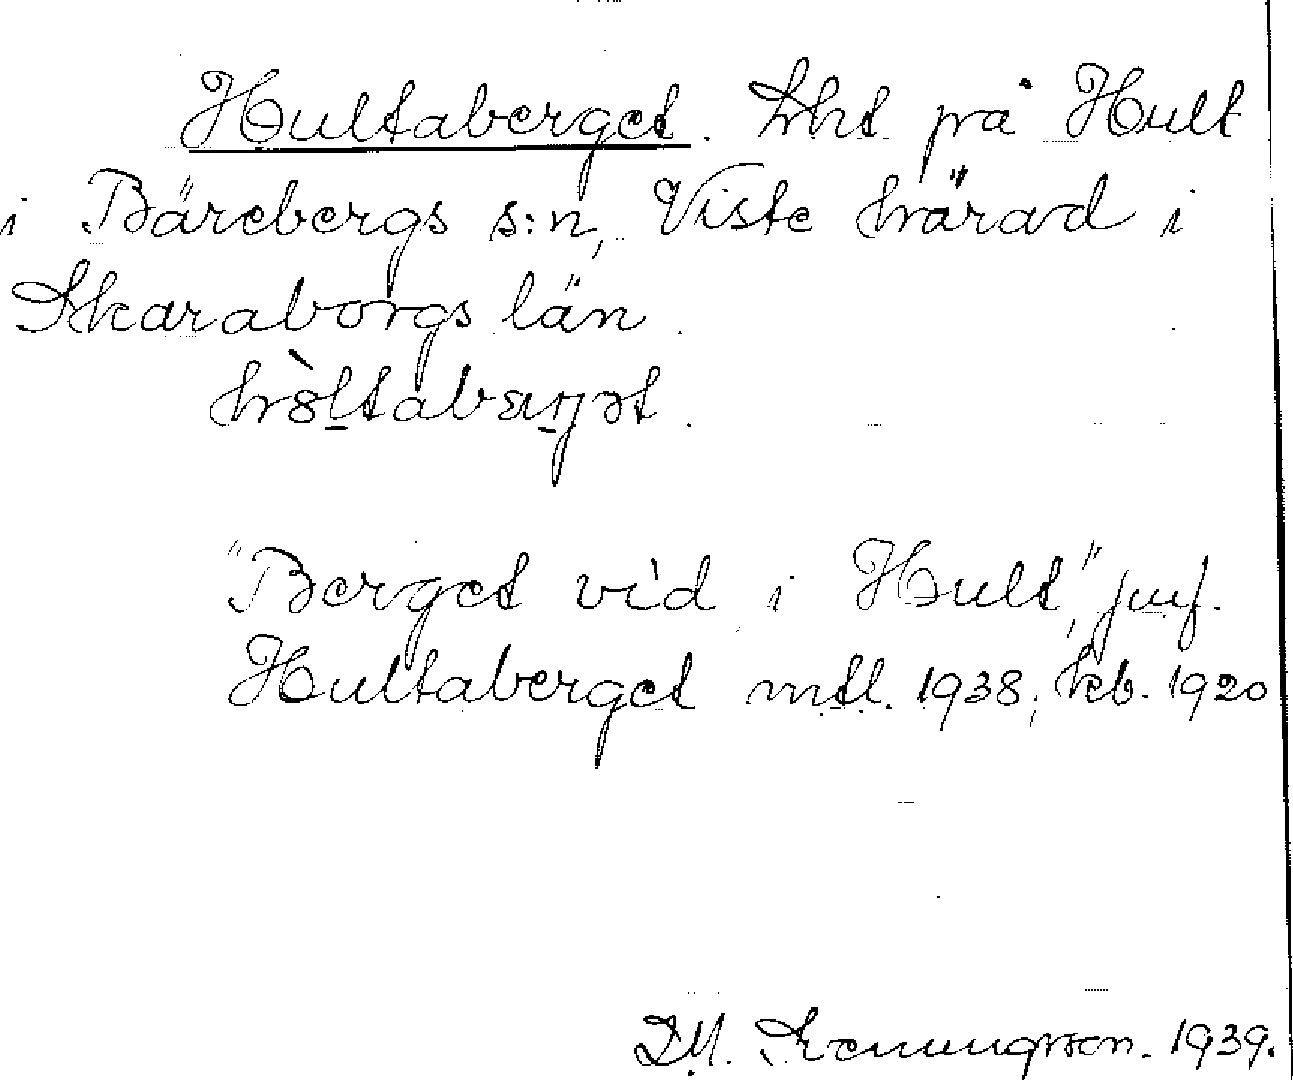 Hultaberget. lht på Hult
i Bärebergs s:n, Viste härad i
Skaraborgs län.
"Berget vid i Hult", jmf.
Hultaberget mtl. 1938, kb. 1920
1939.